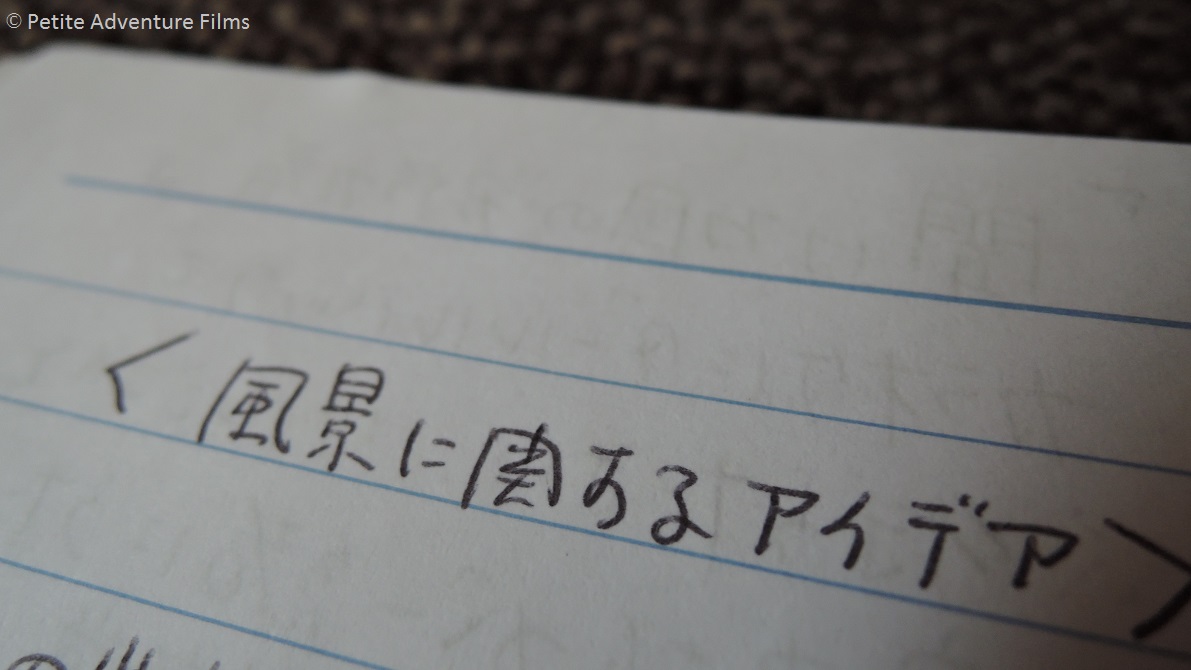 © Petite Adventure Films
<風景に関するアイデア>